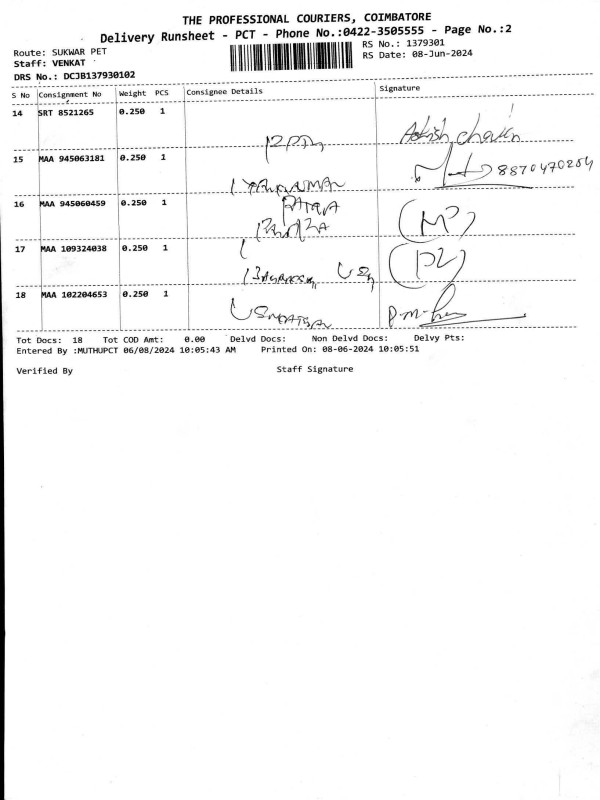 THE PROFESSIONAL COURIERS, COIMBATORE
Delivery Runsheet - PCT - Phone No.:0422-3505555 - Page No.:2
Route: SUKWAR PET
RS No.: 1379301
Staff: VENKAT
RS Date: 08-Jun-2024
DRS No.: DCJB137930102
S No Consignment No Weight PCS Consignee Details Signature
14 SRT 8521265 0.250 1
15 MAA 945063181 0.250 1 8870470254
16 MAA 945060459 0.250 1
17 MAA 109324038 0.250 1
18 MAA 102204653 0.250 1
Tot Docs: 18 Tot COD Amt: 0.00 Delvd Docs: Non Delvd Docs: Delvy Pts:
Entered By :MUTHUPCT 06/08/2024 10:05:43 AM Printed On: 08-06-2024 10:05:51
Verified By Staff Signature